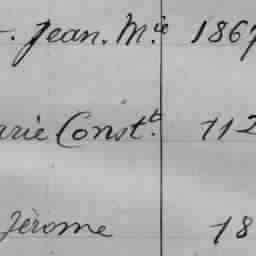 Jean. M.ie 1867
arie Const.t 112
Jèrome 18